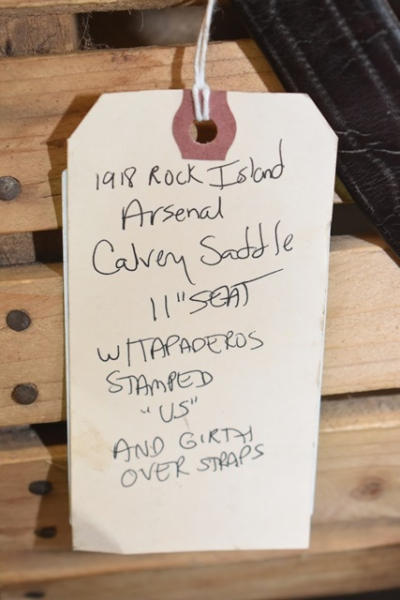 1918 Rock Island
Arsenal
Calvery Saddle
11" SEAT
W/TAPADEROS
STAMPED
"US"
AND GIRTH
OVER STRAPS